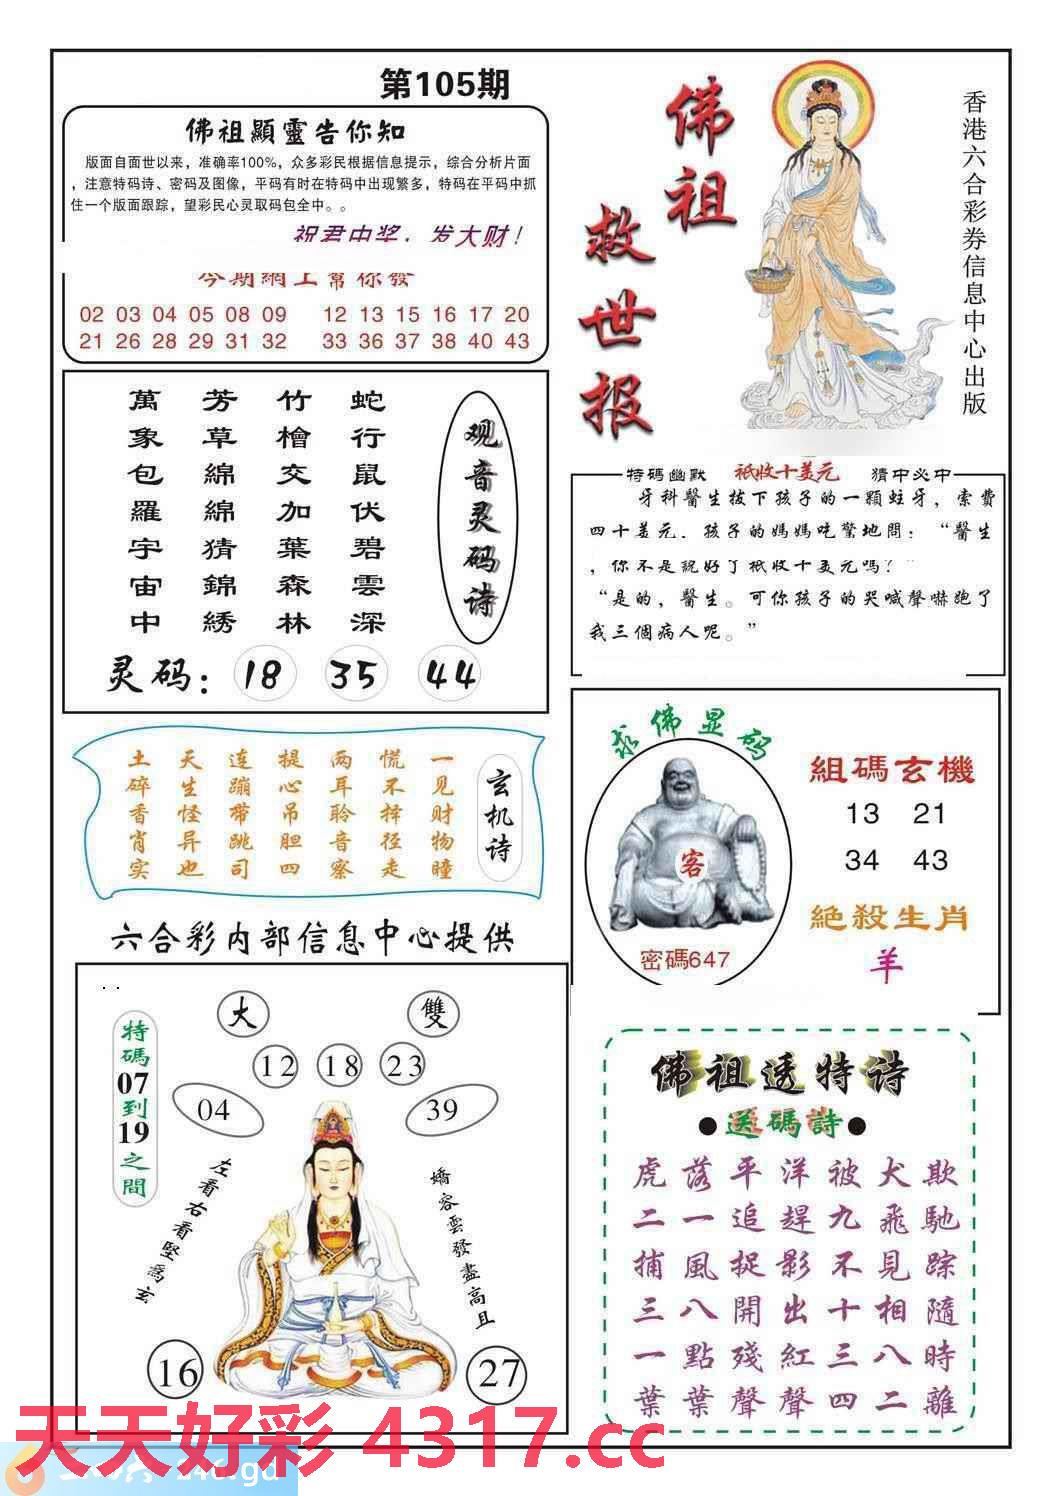 第105期
佛祖顯靈告你知
版面自面世以来，准确率100%，众多彩民根据信息提示，综合分析片面
，注意特码诗、密码及图像，平码有时在特码中出现繁多，特码在平码中抓
住一个版面跟踪，望彩民心灵取码包全中。。
祝君中奖，发大财！
今期網上幫你發
02 03 04 05 08 09 12 13 15 16 17 20
21 26 28 29 31 32 33 36 37 38 40 43
佛祖
救世报
香港六合彩券信息中心出版
观音灵码诗
蛇行鼠伏碧雲深
竹檜交加葉森林
芳草綿綿猜錦綉
萬象包羅宇宙中
灵码：18 35 44
特碼幽默 祇收十美元 猜中必中
牙科醫生拔下孩子的一顆蛀牙，索費
四十美元．孩子的媽媽吃驚地問：“醫生
，你不是説好了祇收十美元嗎？”
“是的，醫生。可你孩子的哭喊聲嚇跑了
我三個病人呢。”
玄机诗
一见财物瞳
慌不择径走
两耳聆音察
提心吊胆四
连蹦带跳司
天生怪异也
土碎香肖实
求佛显码
客
密碼647
組碼玄機
13 21
34 43
絕殺生肖
羊
六合彩内部信息中心提供
大 雙
12 18 23
04 39
特碼07到19之間
左看右看堅爲玄
嬌容雲發盡高且
16 27
佛祖透特诗
●送碼詩●
虎落平洋被犬欺
二一追趕九飛馳
捕風捉影不見踪
三八開出十相隨
一點殘紅三八時
葉葉聲聲四二離
天天好彩 4317.cc
246.gd